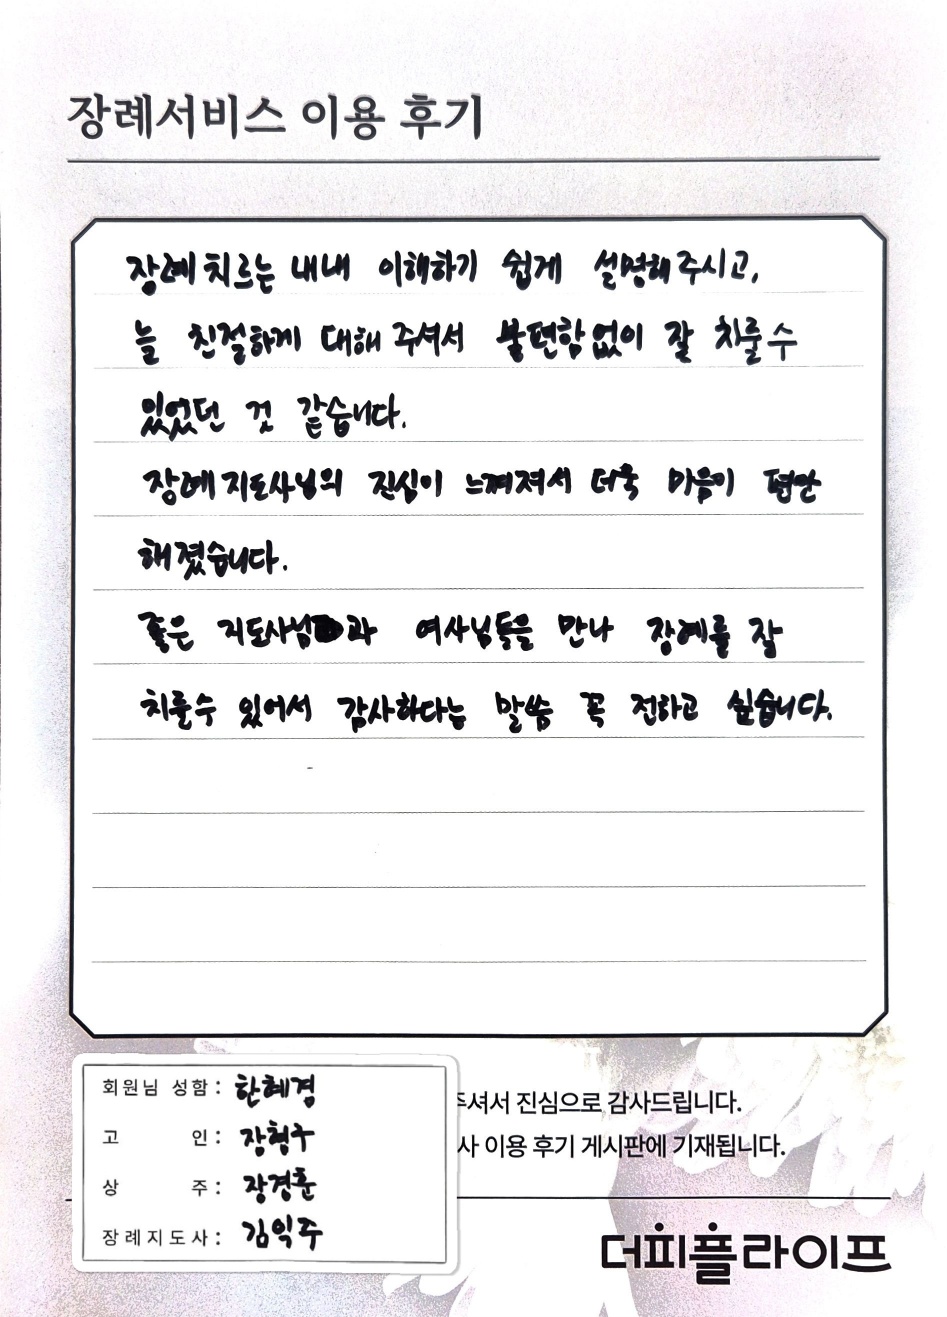 장례서비스 이용 후기
장례 치르는 내내 이해하기 쉽게 설명해 주시고,
늘 친절하게 대해 주셔서 불편함 없이 잘 치룰 수
있었던 것 같습니다.
장례 지도사님의 진심이 느껴져서 더욱 마음이 편안
해졌습니다.
좋은 지도사님과 여사님들을 만나 장례를 잘
치룰수 있어서 감사하다는 말씀 꼭 전하고 싶습니다.
회원님 성함 : 한혜경
고 인 : 장형구
상 주 : 장경훈
장례지도사 : 김익주
주셔서 진심으로 감사드립니다.
사 이용 후기 게시판에 기재됩니다.
더피플라이프